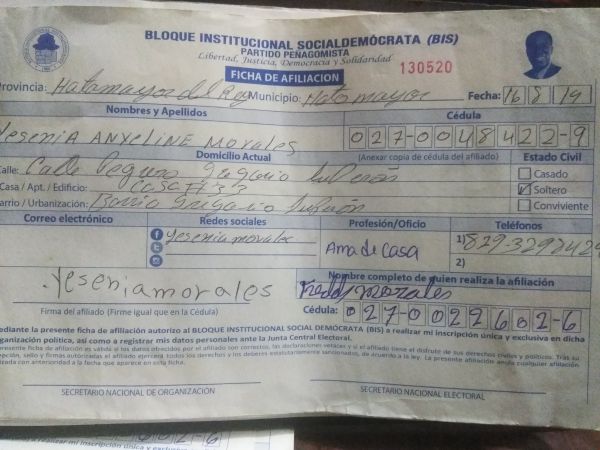 BLOQUE INSTITUCIONAL SOCIALDEMÓCRATA (BIS)
PARTIDO PEÑAGOMISTA
Libertad, Justicia, Democracia y Solidaridad
FICHA DE AFILIACION 130520
Provincia: Hatomayor del Rey Municipio: Hato mayor Fecha: 16 8 19
Nombres y Apellidos Cédula
YeseniA ANYELINE MoRALes 027-0048422-9
Domicilio Actual (Anexar copia de cédula del afiliado) Estado Civil
Calle: Calle Segunda Gregorio Luperón Casado
Casa / Apt. / Edificio: CASA # 33 Soltero
Barrio / Urbanización: Barrio Gregorio Luperón Conviviente
Correo electrónico Redes sociales Profesión/Oficio Teléfonos
yesenia morales Ama de CASA 1) 829-329
2)
yesenia morales Nombre completo de quien realiza la afiliación
Freddy morales
Firma del afiliado (Firme igual que en la Cédula) Cédula: 027-0027602-6
ediante la presente ficha de afiliación autorizo al BLOQUE INSTITUCIONAL SOCIAL DEMÓCRATA (BIS) a realizar mi inscripción única y exclusiva en dicha
ganización política, así como a registrar mis datos personales ante la Junta Central Electoral.
presente ficha de afiliación es válida si los datos ofrecidos por el afiliado son correctos, las declaraciones veraces y si el afiliado tiene el disfrute de sus derechos civiles y políticos. Tras su
epción, sello y firmas autorizadas el afiliado ejercerá todos los derechos y los deberes estatutariamente sancionados, de acuerdo a la ley. La presente afiliación anula cualquier afiliación
izada con anterioridad a la fecha que aparece en esta ficha.
SECRETARIO NACIONAL DE ORGANIZACIÓN SECRETARIO NACIONAL ELECTORAL
a realizar mi inscripción única y exclusiva